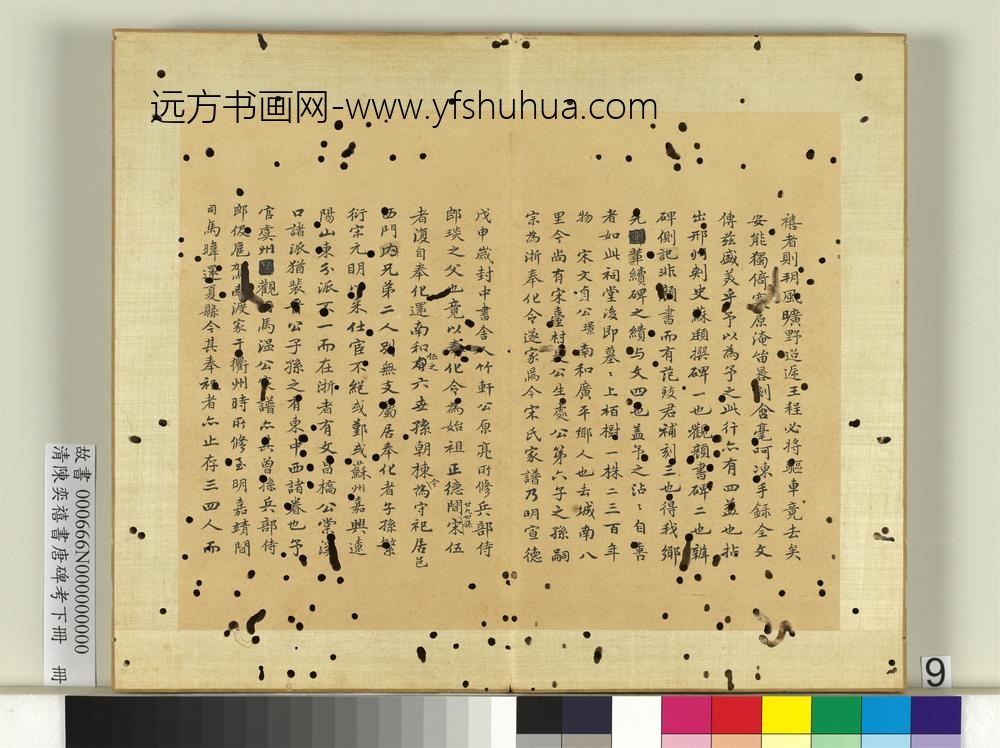 远方书画网-www.yfshuhua.com
禧者則朔風曠野迢遞王程必將驅車竟去矣
安能獨倚寒原淹留晷刻含毫呵凍手錄全文
傳茲盛美乎予以為予之此行亦有四益也拈
出邢州刺史蘇頲撰碑一也觀顏書碑二也辨
碑側記非顏書而有范致君補刻三也得我鄉
先輩續碑之績与文四也蓋予之沾沾自喜
者如此祠堂後即墓墓上栢樹一株二三百年
物 宋文貞公璟南和廣平鄉人也去城南八
里今尚有宋臺村是公生處公第六子之孫嗣
宗為浙奉化令遂家焉今宋氏家譜乃明宣德
戊申歲封中書舍人竹軒公原亮所修兵部侍
郎琰之父也竟以奉化令為始祖正德間宋伍
廿九世孫
者復自奉化還南和有六世孫朝棟為守祀居邑
伍之
今
西門內兄弟二人別無支屬居奉化者子孫繁
衍宋元明以來仕宦不絕或鄞或蘇州嘉興遠
陽山東分派不一而在浙者有文昌橋公堂
口諸派猶裴公子孫之有東中西諸眷也予
官虞州觀司馬溫公家譜亦其曾孫兵部侍
郎伋扈駕南渡家于衢州時所修至明嘉靖間
司馬暐還夏縣今其奉祀者亦止存三四人而
故書 000666N000000000
清陳奕禧書唐碑考下冊 冊
9